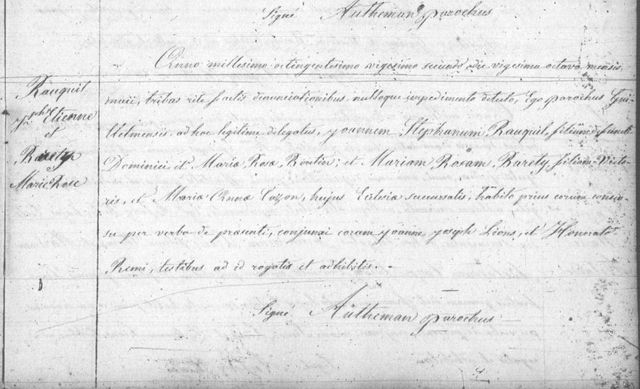 Signé Autheman parochus
Anno millesimo octingentesimo vigesimo secundo die vigesima octava mensis
maii, tribus rite factis denunciationibus nulloque impedimento detecto, Ego parochus Gui
Rauquil
Jph Etienne
et
Barety
Marie Rose
llelmensis ad hoc legitime delegatus, Joannem Stephanum Rauquil, filium defuncti
Dominici et Maria Rosa Boutin; et Mariam Rosam Barety, filiam Victo
ris, et Maria Anna Cozzon, hujus Ecclesia succursalis, habito prius eorum consen
su per verba de presenti, conjunxi coram Joanne Joseph Lions, et Honorato
Remi, testibus ad id rogatis et adhibitis.
Signé Autheman parochus